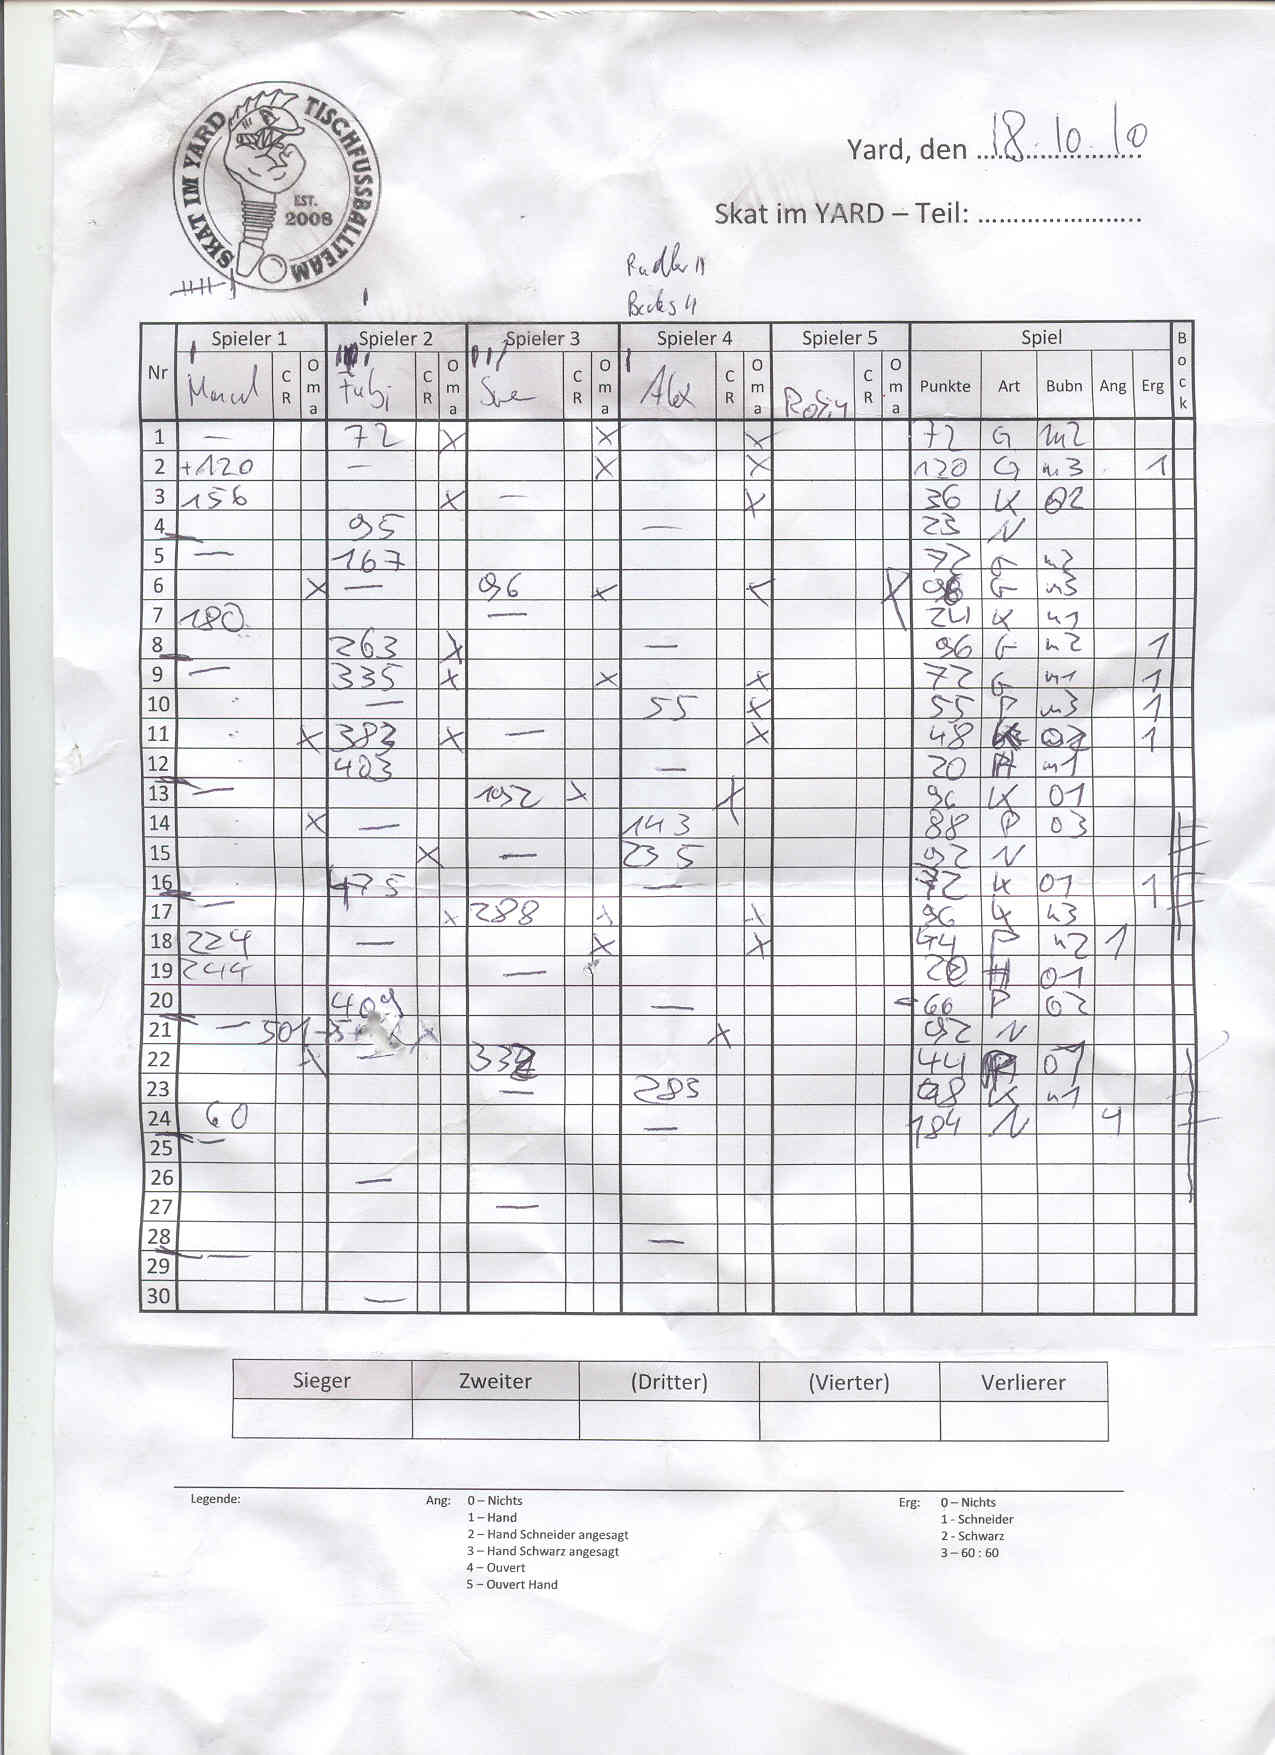 SKAT IM YARD
TISCHFUSSBALLTEAM
EST.
2008
Yard, den 18.10.10
Skat im YARD – Teil: ........................
Spieler 1 Spieler 2 Spieler 3 Spieler 4 Spieler 5 Spiel Bock
Nr Marcel CR Oma Fubi CR Oma CR Oma Alex CR Oma Robin CR Oma Punkte Art Bubn Ang Erg
1 — 72 X X X 72 G m2
2 +120 — X X 120 G m3 1
3 156 X — X 36 K 02
4 95 — 23 N
5 — 167 72 G m2
6 X — 96 X X X 96 G m3
7 180 — 24 K m1
8 263 X — 96 G m2 1
9 — 335 X X X 72 G m1 1
10 — 55 X 55 P m3 1
11 X 383 X — X 48 K 02 1
12 403 — 20 m1
13 — 192 X X 96 K 01
14 X — 143 88 P 03
15 X — 235 92 N
16 475 — 72 K 01 1
17 — X 288 X X 96 K m3
18 224 — X X 44 P m2 1
19 244 — 20 H 01
20 409 — -66 P 02
21 — 501 X X 92 N
22 X — 332 44 01
23 — 283 48 K m1
24 60 — 184 N 4
25 —
26 —
27 —
28 —
29 —
30 —
Sieger Zweiter (Dritter) (Vierter) Verlierer
Legende: Ang: 0 – Nichts Erg: 0 – Nichts
1 – Hand 1 - Schneider
2 – Hand Schneider angesagt 2 - Schwarz
3 – Hand Schwarz angesagt 3 – 60 : 60
4 – Ouvert
5 – Ouvert Hand